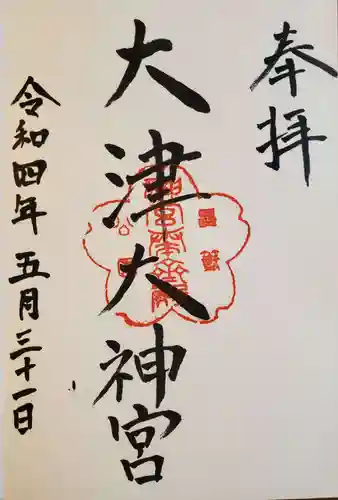 奉拝
大津大神宮
令和四年五月三十一日